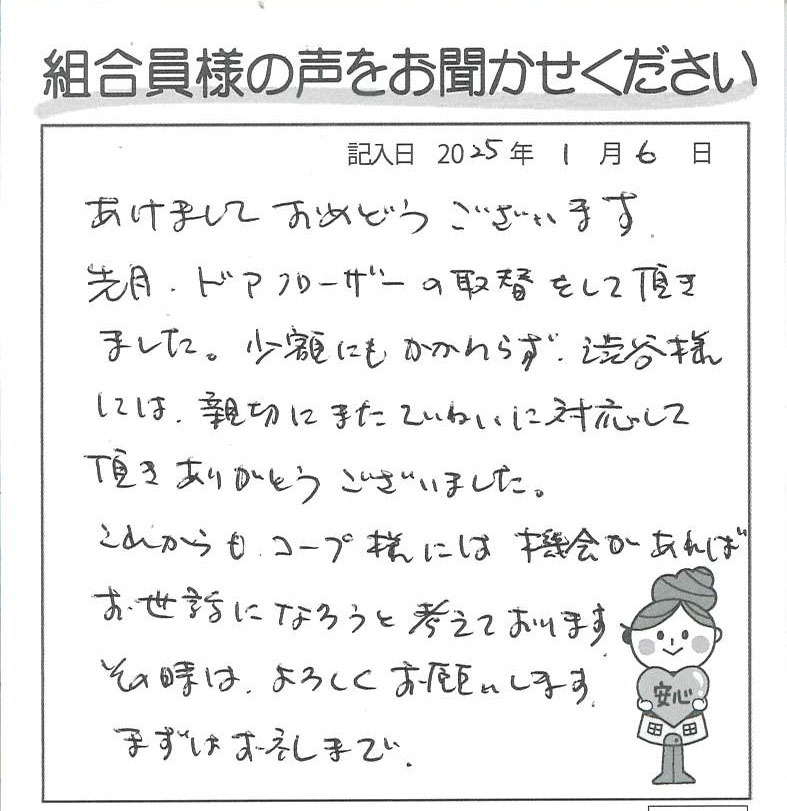 組合員様の声をお聞かせください
記入日 2025年 1月6日
あけまして おめどうございます.
先月.ドアクローザーの取替をして頂き
ました。少額にもかかわらず.渋谷様
には.親切にまたていねいに対応して
頂きありがとうございました。
これからも.コープ様には機会があれば
お世話になろうと考えております.
その時は.よろしくお願いします.
まずはお礼まで.
安心